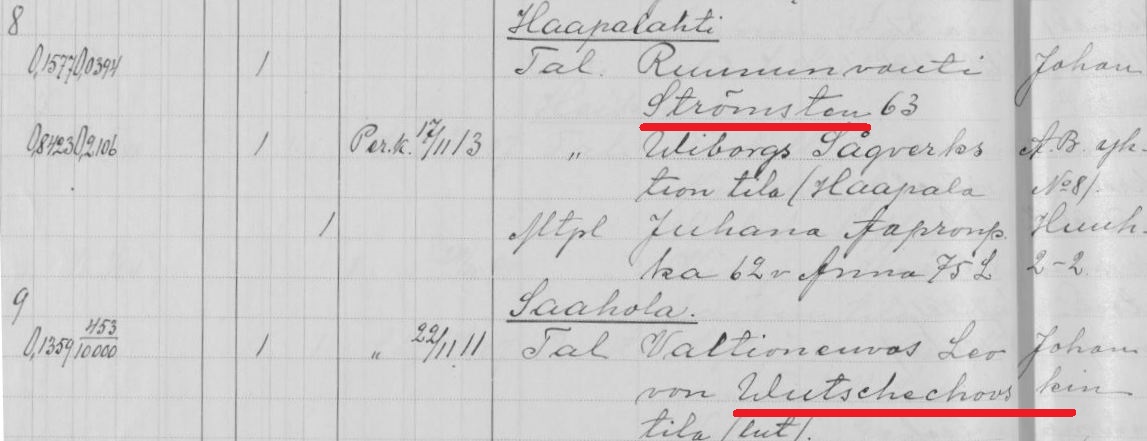 8 Haapalahti
0,1577 0,0394 1 Tal. Ruununvouti Johan
Strömsten 63
0,8423 0,2106 1 Per.k. 17/11 13 " Wiborgs Sågverks A.B. yh-
tiön tila (Haapala No 8).
1 Mtpl Juhana Aapronp. Huuh-
ka 62 v Anna 75 L 2-2
9 Saahola.
0,1359 453/10000 1 " 22/11 11 Tal Valtioneuvos Leo Johan
von Wutschechovs kin
tila (lut).